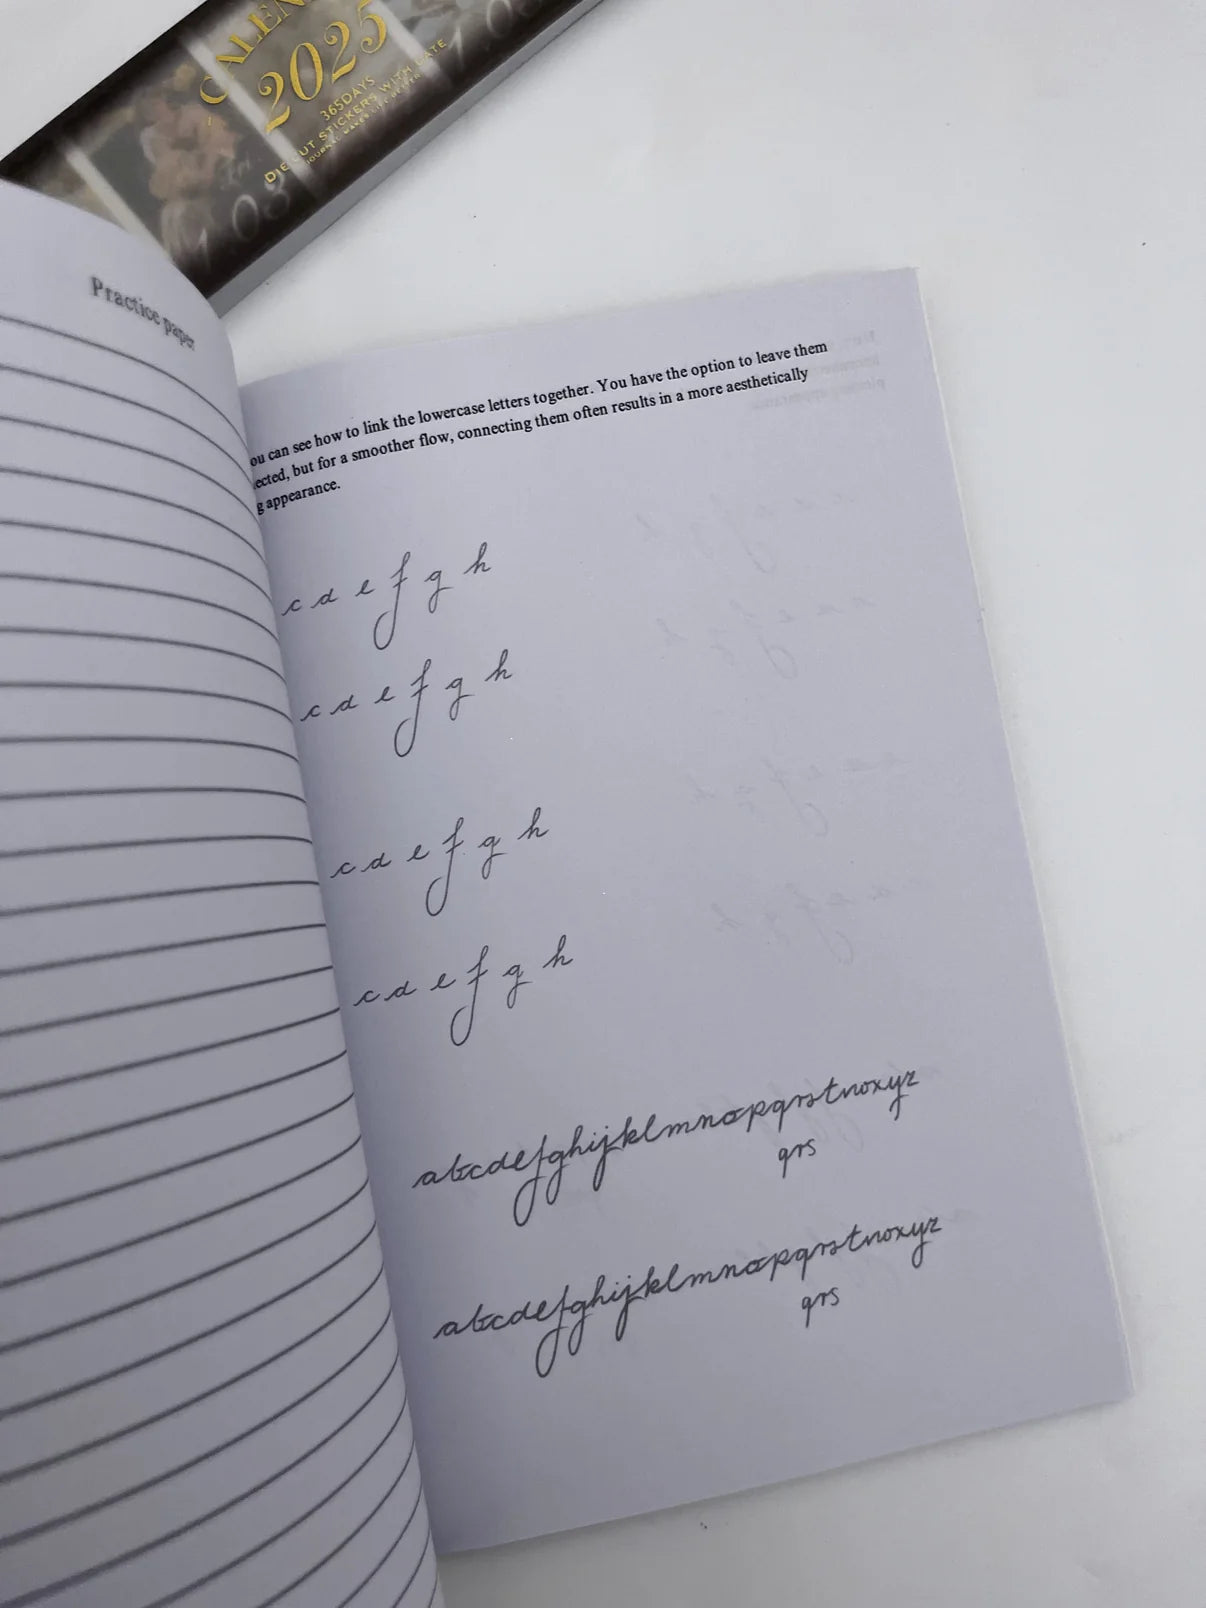 CALEN
2025
365DAYS
DIE CUT STICKERS WITH DATE
JOURNAL MAKES LIFE BETTER
03
Practice paper
ou can see how to link the lowercase letters together. You have the option to leave them
ected, but for a smoother flow, connecting them often results in a more aesthetically
g appearance.
c d e f g h
c d e f g h
c d e f g h
c d e f g h
abcdefghijklmnopqrstvoxyz
qrs
abcdefghijklmnopqrstvoxyz
qrs